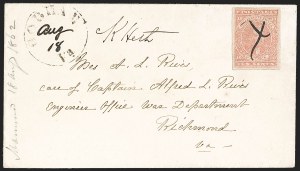 Aug
18
Mrs A. L. Rives
care of Captain Alfred L. Rives
Engineer Office War Department
Richmond
Va
18 Aug 1862